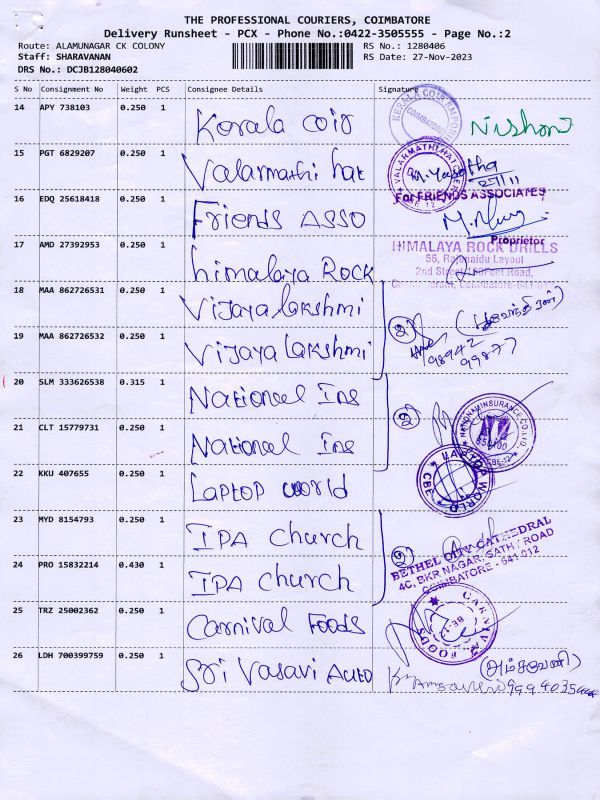 THE PROFESSIONAL COURIERS, COIMBATORE
Delivery Runsheet - PCX - Phone No.:0422-3505555 - Page No.:2
Route: ALAMUNAGAR CK COLONY
RS No.: 1280406
Staff: SHARAVANAN
RS Date: 27-Nov-2023
DRS No.: DCJB128040602
S No Consignment No Weight PCS Consignee Details Signature
14 APY 738103 0.250 1 Kerala coir
KERALA COIR
COIMBATORE
15 PGT 6829207 0.250 1 Valarmathi hat
VALARMATHI HATCHERY
27/11
16 EDQ 25618418 0.250 1 Friends ASSO
For FRIENDS ASSOCIATES
Proprietor
17 AMD 27392953 0.250 1 himalaya ROCK
HIMALAYA ROCK DRILLS
56, Layout
2nd Street, Road,
18 MAA 862726531 0.250 1 Vijaya lakshmi
19 MAA 862726532 0.250 1 Vijaya lakshmi
98942
99877
20 SLM 333626538 0.315 1 National Ins
21 CLT 15779731 0.250 1 National Ins
NATIONAL INSURANCE CO. LTD.
CBE-12
22 KKU 407655 0.250 1 Laptop world
LAPTOP WORLD
CBE
23 MYD 8154793 0.250 1 IPA church
24 PRO 15832214 0.430 1 IPA church
BETHEL CITY CATHEDRAL
4C, BKR NAGAR, SATHY ROAD
COIMBATORE - 641 012
25 TRZ 25002362 0.250 1 Carnival Foods
CARNIVAL FOODS
26 LDH 700399759 0.250 1 Sri Vasavi Auto